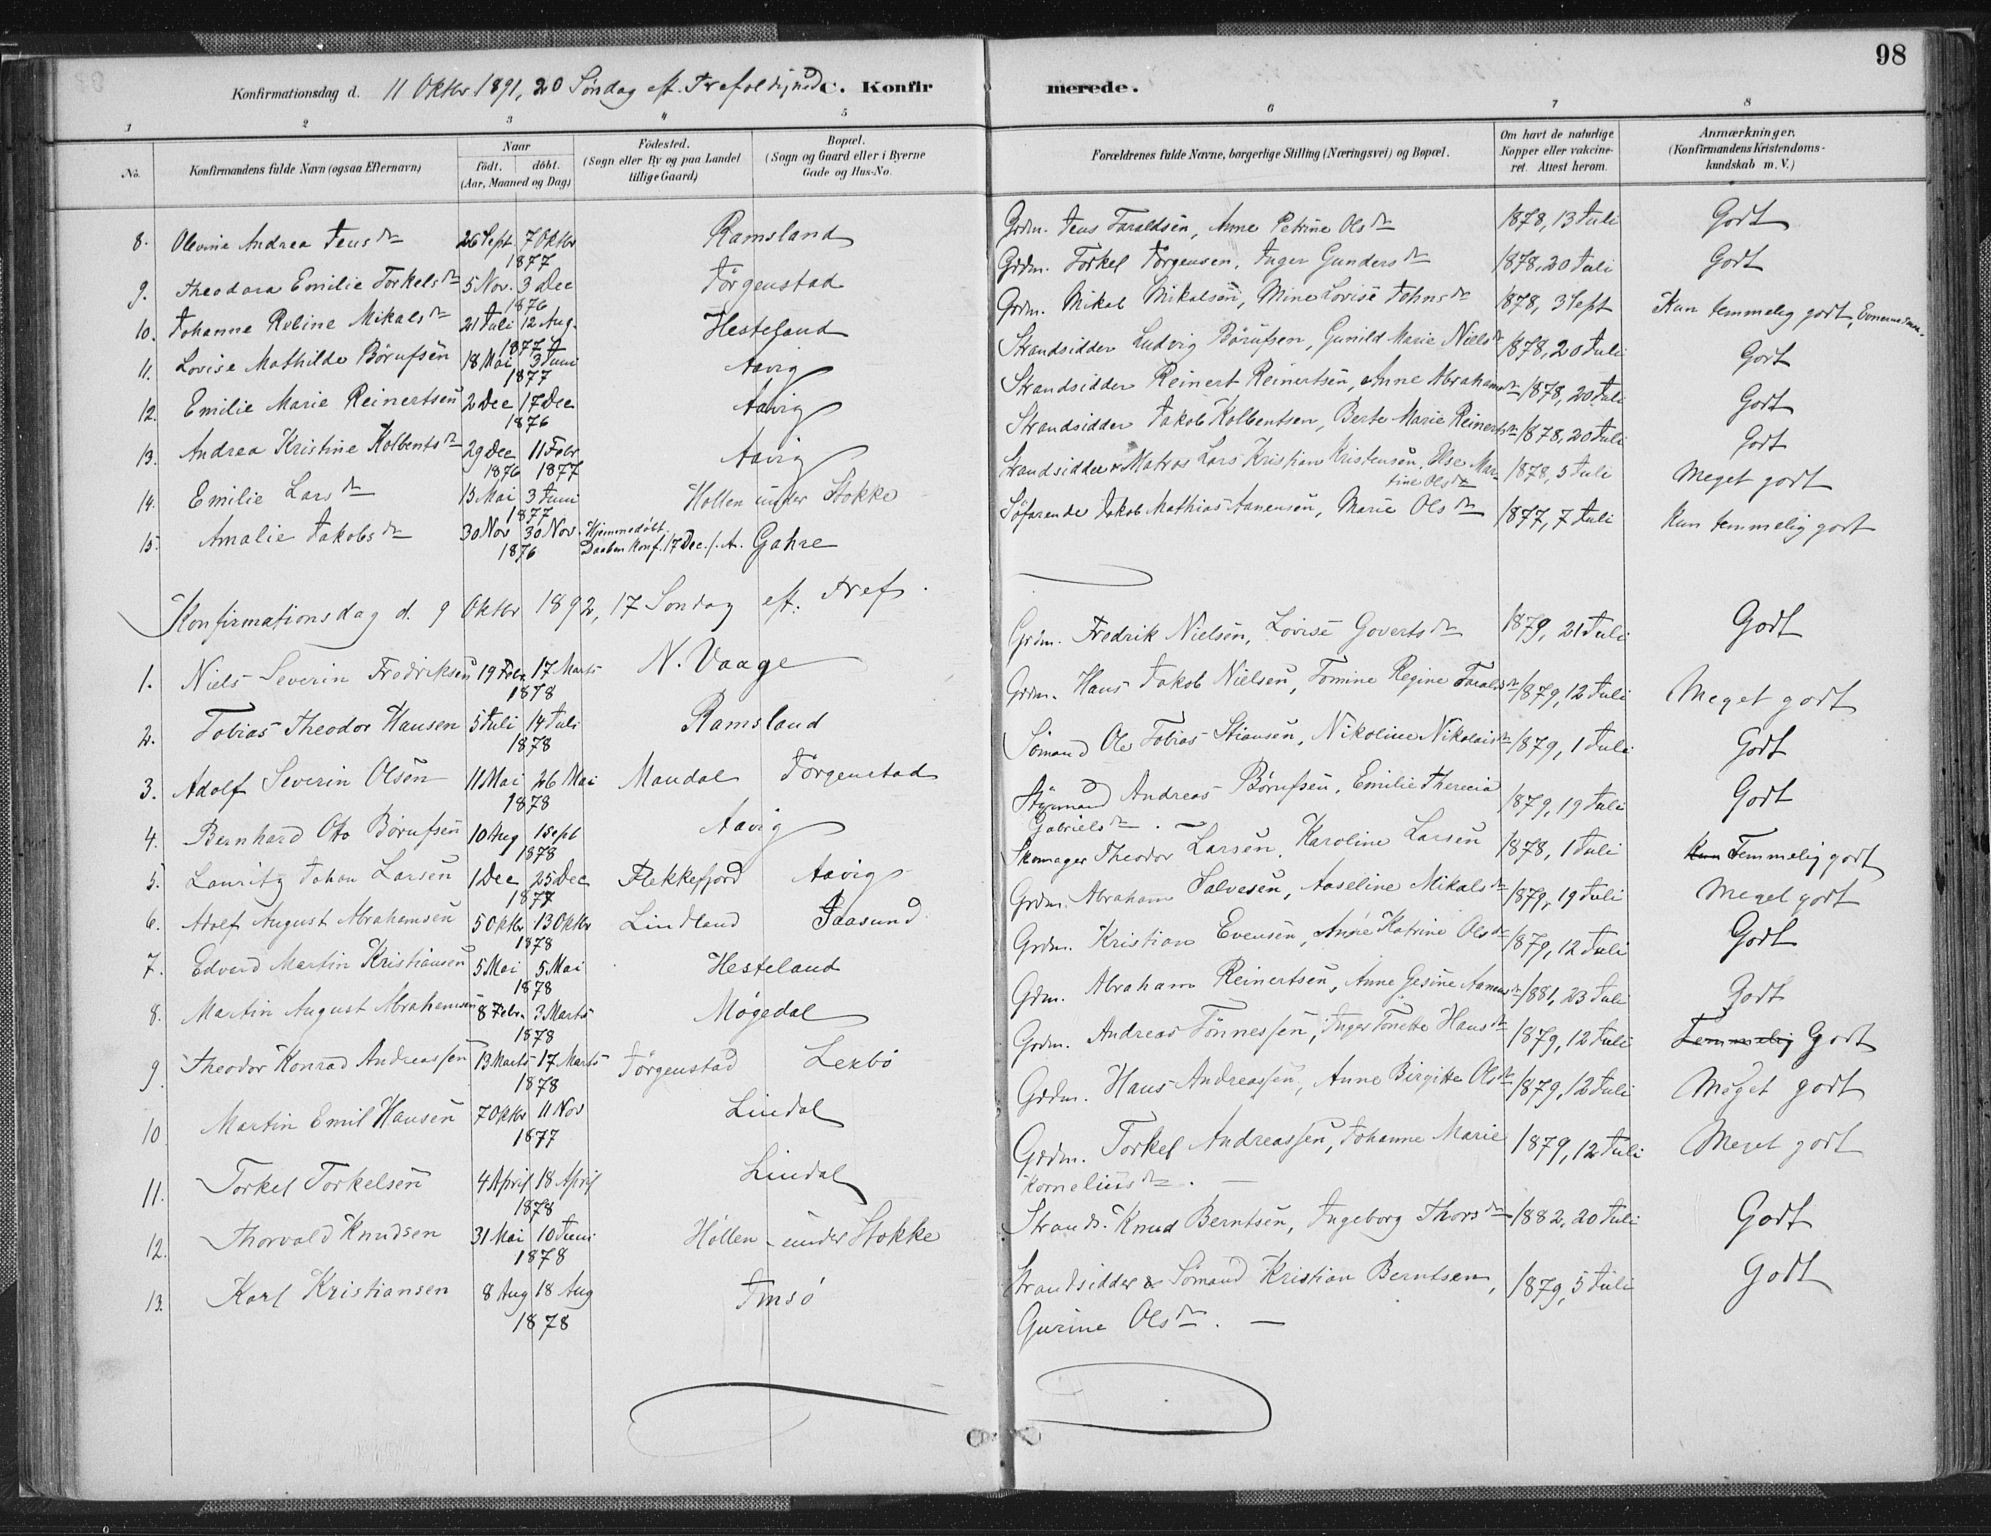 98
Konfirmationsdag d. 11 Oktbr 1891, 20 Søndag eft. Trefoldighed C. Konfirmerede.
1 2 3 4 5 6 7 8
No. Konfirmandens fulde Navn (ogsaa Efternavn) Naar født. døbt. (Aar, Maaned og Dag) Fødested. (Sogn eller By og paa Landet tillige Gaard) Bopæl. (Sogn og Gaard eller i Byerne Gade og Hus-No. Forældrenes fulde Navne, borgerlige Stilling (Næringsvei) og Bopæl. Om havt de naturlige Kopper eller vakcineret. Attest herom. Anmærkninger. (Konfirmandens Kristendomskundskab m. V.)
8. Olevine Andrea Jensdtr 26 Sept. 7 Oktbr 1877 Ramsland Grdm. Jens Taraldsen, Anne Petrine Olsdtr 1878, 13 Juli Godt
9. Theodora Emilie Torkelsdtr 5 Nov. 3 Dec 1876 Jørgenstad Grdm. Torkel Jørgensen, Inger Gundersdtr 1878, 20 Juli Godt
10. Johanne Reline Mikalsdtr 21 Juli 12 Aug. 1877 Hesteland Grdm. Mikal Mikalsen, Mine Lovise Johnsdtr 1878, 3 Sept Kun temmelig godt,
11. Lovise Mathilde Børufsen 18 Mai 3 Juni 1877 Aavig Strandsidder Ludvig Børufsen, Gunild Marie Nielsdtr 1878, 20 Juli Godt
12. Emilie Marie Reinertsen 2 Dec 17 Dec 1876 Aavig Strandsidder Reinert Reinertsen, Anne Abrahamsdtr 1878, 20 Juli Godt
13. Andrea Kristine Kolbentsdtr 29 Dec 1876 11 Febr 1877 Aavig Strandsidder Jakob Kolbentsen, Berte Marie Reinertsdtr 1878, 20 Juli Godt
14. Emilie Larsdtr 13 Mai 3 Juni 1877 Hollen under Stokke Strandsidder & Matros Lars Kristian Kristensen, Else Martine Olsdtr 1878, 5 Juli Meget godt
15. Amalie Jakobsdtr 30 Nov 30 Nov. 1876 Hjemmedøbt. Daaben Konf. 17 Dec. s. A. Gahre Søfarende Jakob Mathias Aanensen, Marie Olsdtr 1877, 7 Juli Kun temmelig godt
Konfirmationsdag d. 9 Oktbr 1892, 17 Søndag eft. Tref.
1. Niels Severin Fredriksen 19 Febr. 17 Marts 1878 N. Vaage Grdm. Fredrik Nielsen, Lovise Govertsdtr 1879, 21 Juli Godt
2. Tobias Theodor Hansen 5 Juli 14 Juli 1878 Ramsland Grdm. Hans Jakob Nielsen, Tomine Regine Taraldsdtr 1879, 12 Juli Meget godt
3. Adolf Severin Olsen 11 Mai 26 Mai 1878 Mandal Jørgenstad Sømand Ole Tobias Stiansen, Nikoline Nikolaisdtr 1879, 1 Juli Godt
4. Bernhard Oto Børufsen 10 Aug 1 Sept 1878 Aavig Styrmand Andreas Børufsen, Emilie Therecia Gabrielsdtr. 1879, 19 Juli Godt
5. Lauritz Johan Larsen 1 Dec 25 Dec 1877 Flekkefjord Aavig Skomager Theodor Larsen, Karoline Larsen 1878, 1 Juli Kun Temmelig godt
6. Adolf August Abrahamsen 5 Oktbr 13 Oktbr 1878 Lindland Paasund Grdm. Abraham Salvesen, Aaseline Mikalsdtr 1879, 19 Juli Meget godt
7. Edvard Martin Kristiansen 5 Mai 5 Mai 1878 Hesteland Grdm. Kristian Evensen, Anne Katrine Olsdtr 1879, 12 Juli Godt
8. Martin August Abrahamsen 8 Febr. 3 Marts 1878 Møgedal Grdm. Abraham Reinertsen, Anne Gesine Aanensdtr 1881, 23 Juli Godt
9. Theodor Konrad Andreassen 13 Marts 17 Marts 1878 Jørgenstad Lexbø Grdm. Andreas Tønnessen, Inger Tonette Hansdtr 1879, 12 Juli Temmelig Godt
10. Martin Emil Hansen 7 Oktbr 11 Nov 1877 Lindal Grdm. Hans Andreassen, Anne Birgitte Olsdtr 1879, 12 Juli Meget godt
11. Torkel Torkelsen 4 April 18 April 1878 Lindal Grdm. Torkel Andreassen, Johanne Marie Korneliusdtr. 1879, 12 Juli Meget godt
12. Thorvald Knudsen 31 Mai 10 Juni 1878 Høllen under Stokke Strands. Knud Berntsen, Ingeborg Thorsdtr 1882, 20 Juli Godt
13. Karl Kristiansen 8 Aug 18 Aug 1878 Imsø Strandsidder & Sømand Kristian Berntsen, Gurine Olsdtr. 1879, 5 Juli Godt